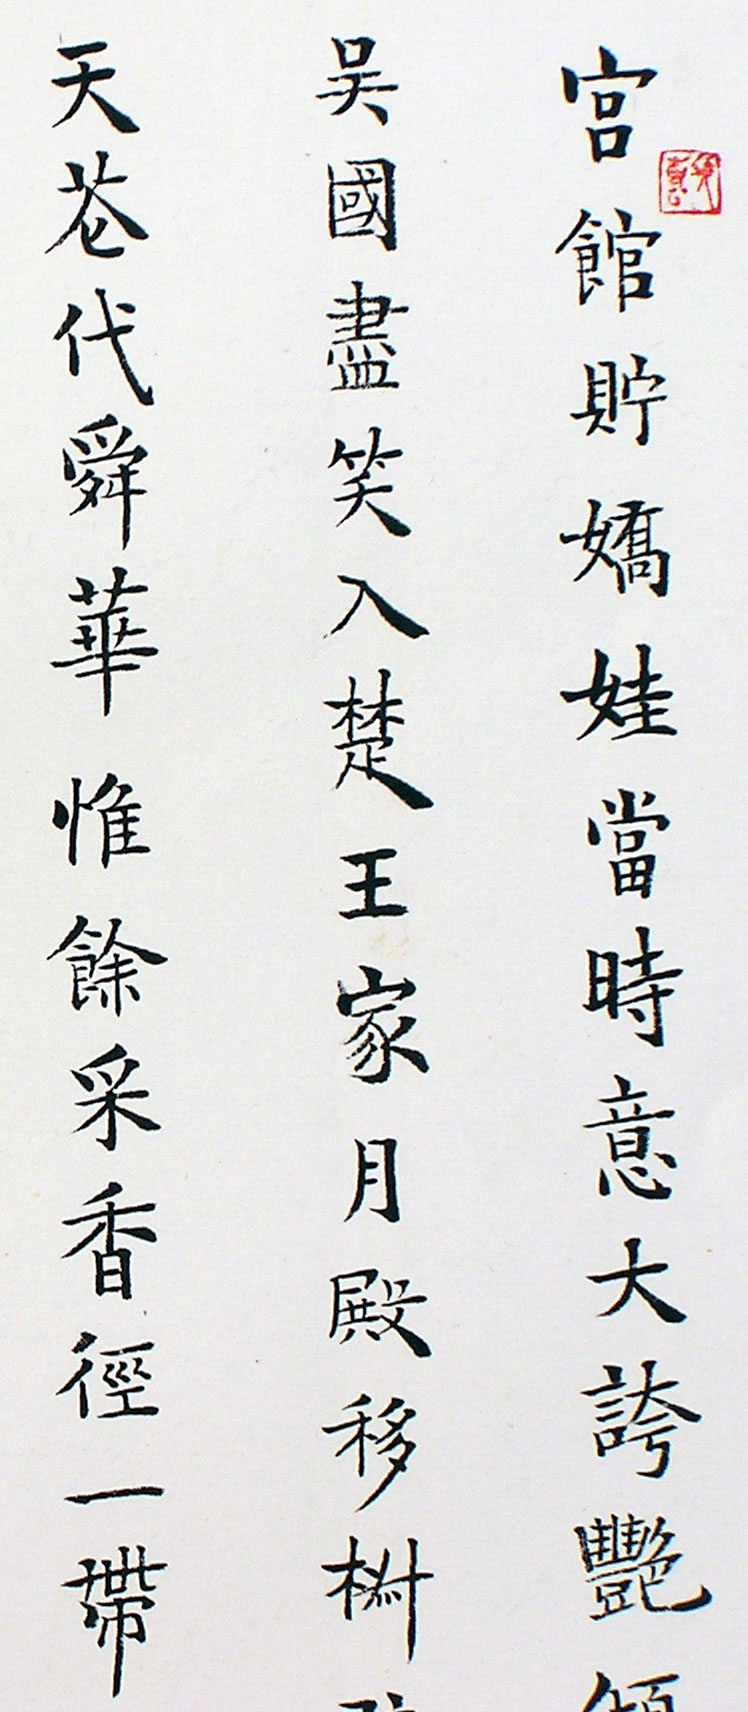 宫館貯嬌娃當時意大誇艷傾
吳國盡笑入楚王家月殿移椒
天花代舜華惟餘采香徑一帶